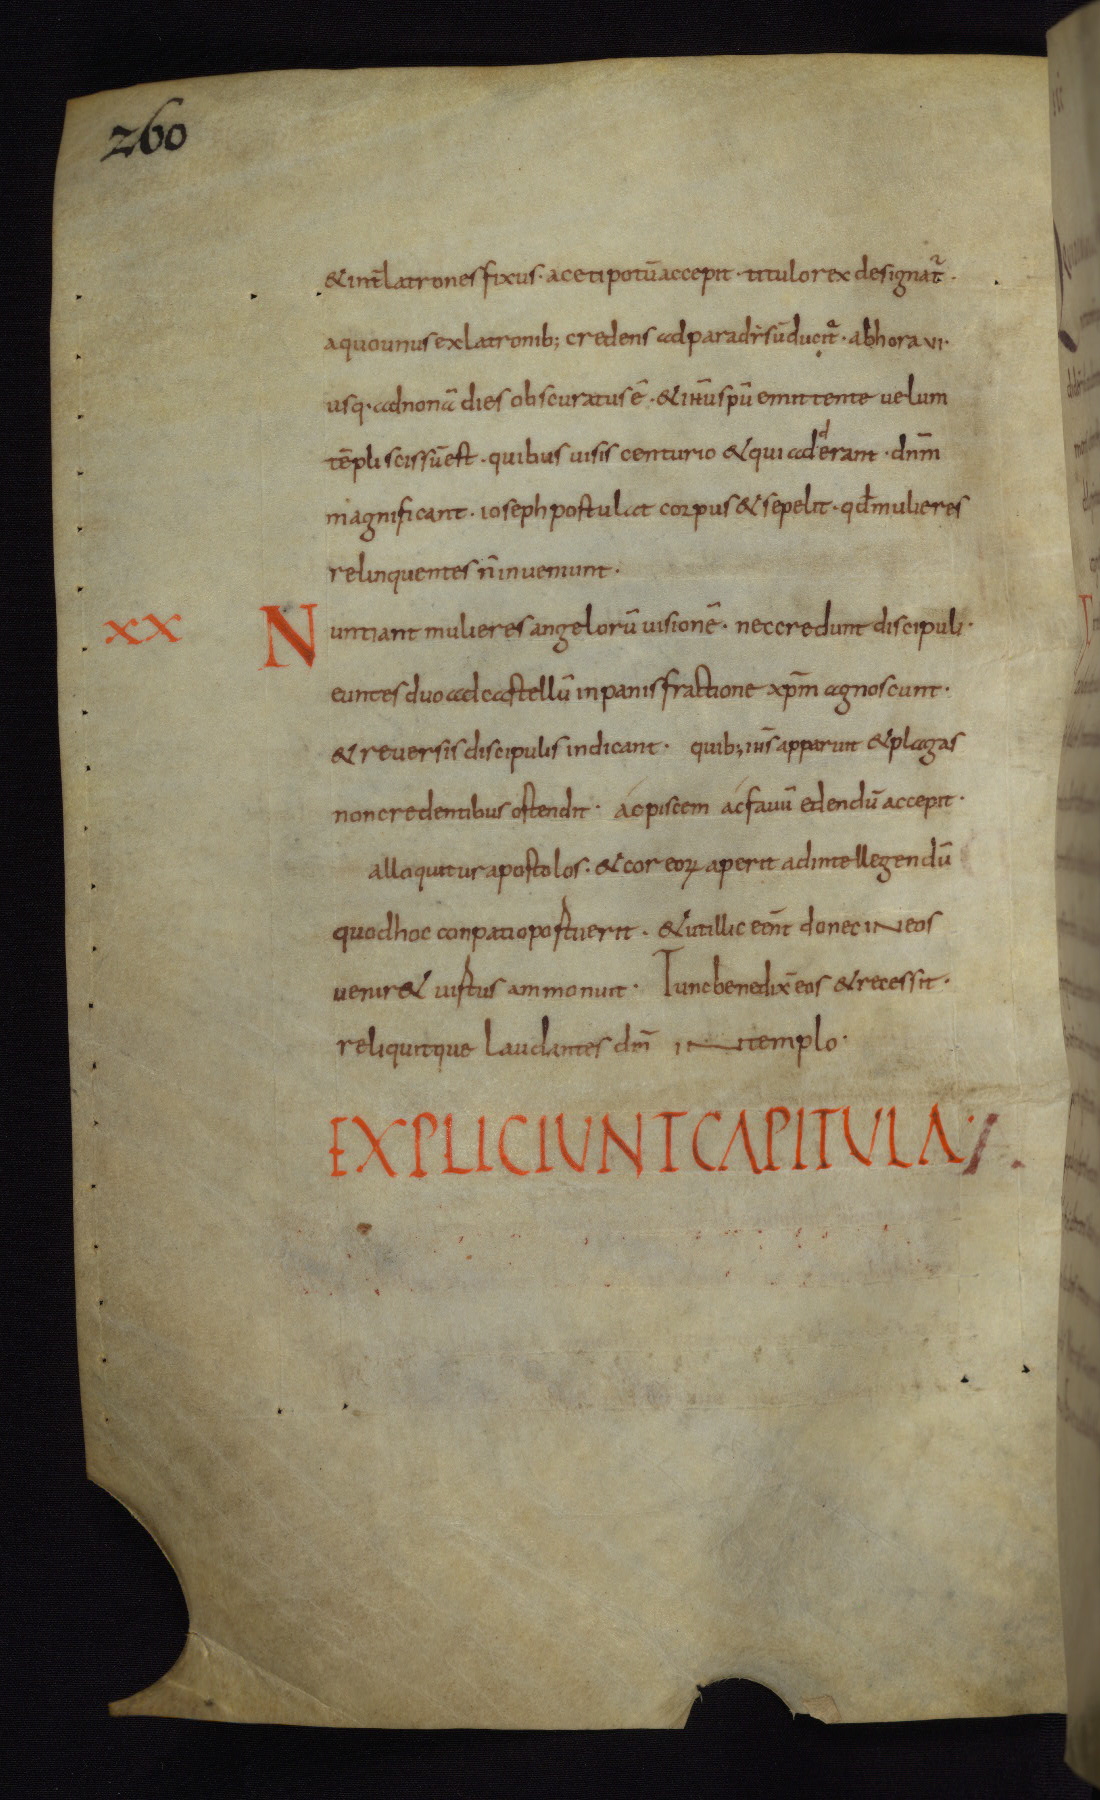 260
& int̄ latrones fixus · aceti potū accepit · titulo rex designat᷑ ·
a quo unus ex latronib; credens ad paradisū ducit᷑ · ab hora vi ·
usq· ad nonā dies obscuratus ē · & ih̄u sp̄u emittente velum
tēpli scissū est · quibus visis centurio & qui ad derant · dn̄m
magnificant · ioseph postulat corpus & sepelit · qđ mulieres
relinquentes n̄ inveniunt ·
XX Nuntiant mulieres angelorū visionē · nec credunt discipuli ·
euntes duo ad castellū in panis fractione xp̄m agnoscunt ·
& reversis discipulis indicant · quib; ih̄s apparuit & plagas
non credentibus ostendit · ac piscem ac favū edendū accepit ·
alloquitur apostolos · & cor eoꝝ aperit ad intellegendū
quod hoc compati oportuerit · & ut illic eēnt donec in eos
venir& virtus ammonuit · Tunc benedix̄ eos & recessit ·
reliquitque laudantes dm̄ in templo ·
EXPLICIUNT CAPITULA ·/.